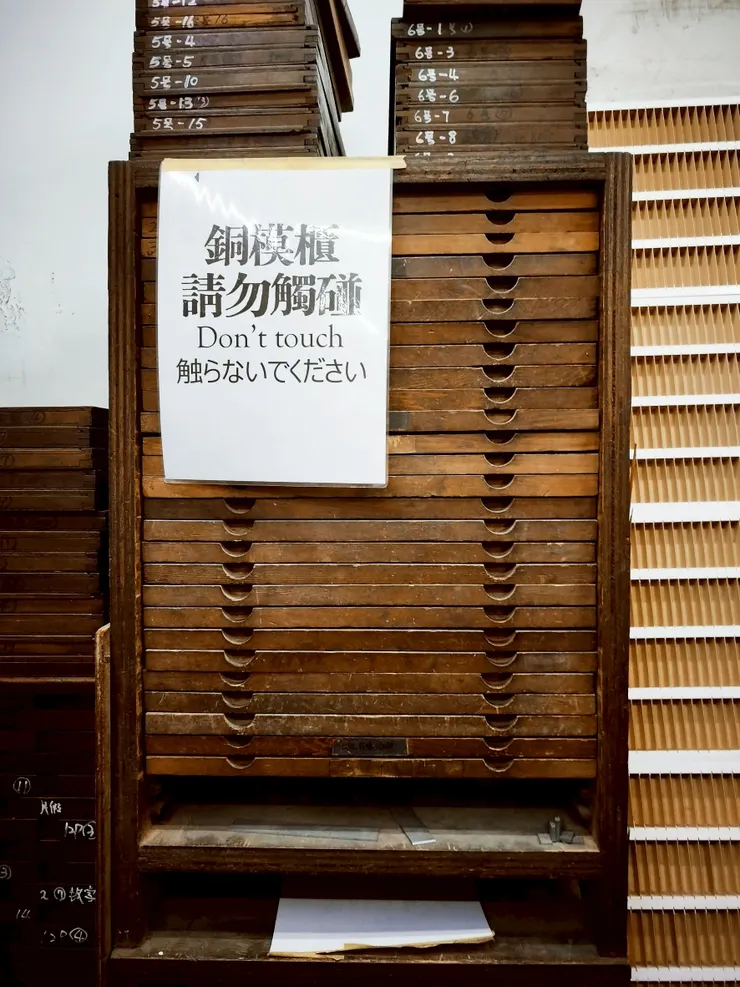 5号-12
5号-16
5号-4
5号-5
5号-10
5号-13
5号-15
6号-1
6号-3
6号-4
6号-6
6号-7
6号-8
銅模櫃
請勿觸碰
Don't touch
触らないでください
⑪
③
14